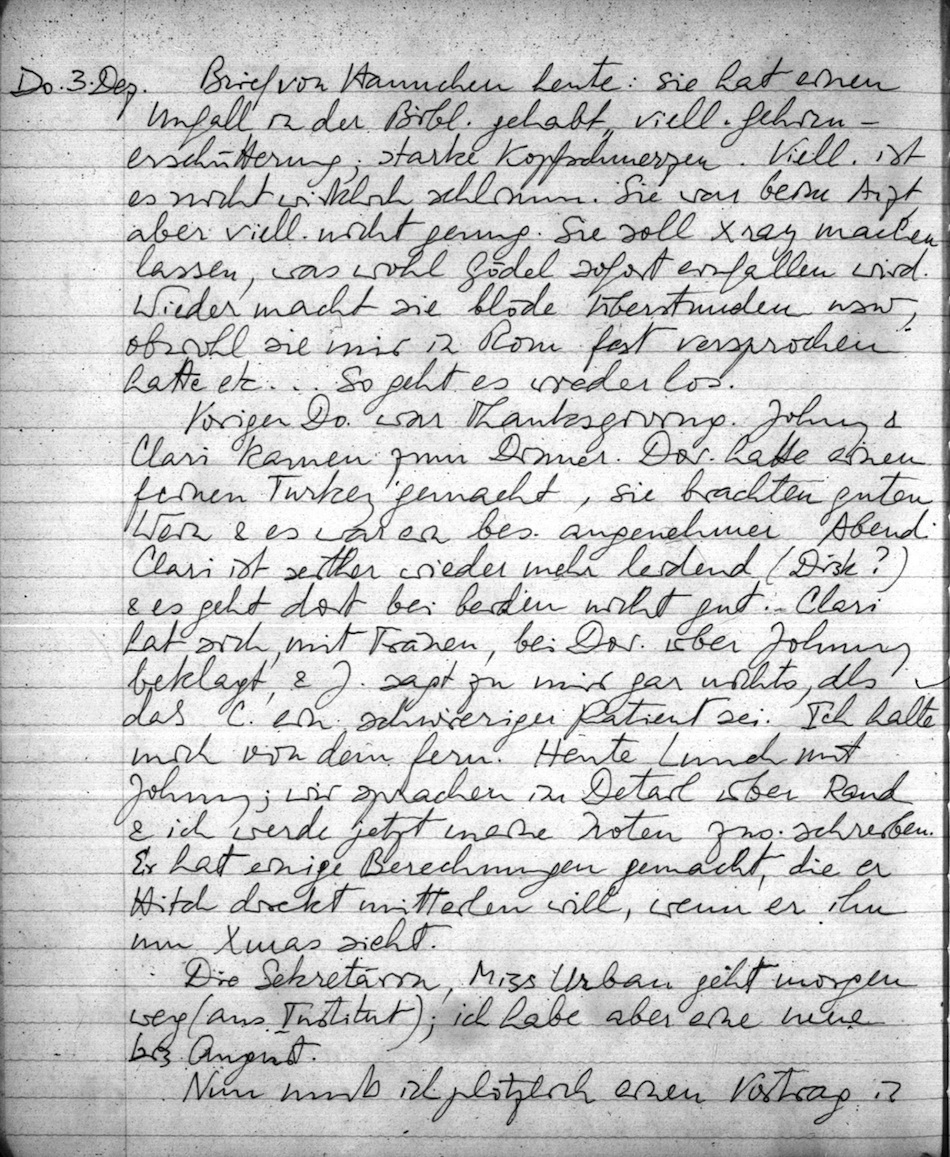 Do. 3. Dez. Brief von Hannchen heute: sie hat einen
Unfall in der Bibl. gehabt, viell. Gehirn-
erschütterung; starke Kopfschmerzen. Viell. ist
es nicht wirklich schlimm. Sie war beim Arzt,
aber viell. nicht genug. Sie soll X ray machen
lassen, was wohl Gödel sofort einfallen wird.
Wieder macht sie blöde Überstunden usw,
obwohl sie mir in Rom fest versprochen
hatte etc... So geht es wieder los.
Voriger Do. war Thanksgiving. Johnny &
Clari kamen zum Dinner. Dor. hatte einen
feinen Turkey gemacht, sie brachten guten
Wein & es war ein bes. angenehmer Abend.
Clari ist seither wieder mehr leidend (Disk?)
& es geht dort bei beiden nicht gut. - Clari
hat sich, mit Tränen, bei Dor. über Johnny
beklagt, & J. sagt zu mir gar nichts, als
das C. ein schwieriger Patient sei. Ich halte
mich von dem fern. Heute Lunch mit
Johnny; wir sprachen im Detail über Rand
& ich werde jetzt meine Noten zus. schreiben.
Er hat einige Berechnungen gemacht, die er
Hitch direkt mitteilen will, wenn er ihn
um Xmas sieht.
Die Sekretärin, Miss Urban geht morgen
weg (ans Institut); ich habe aber eine neue
bis August.
Nun muß ich plötzlich einen Vortrag in